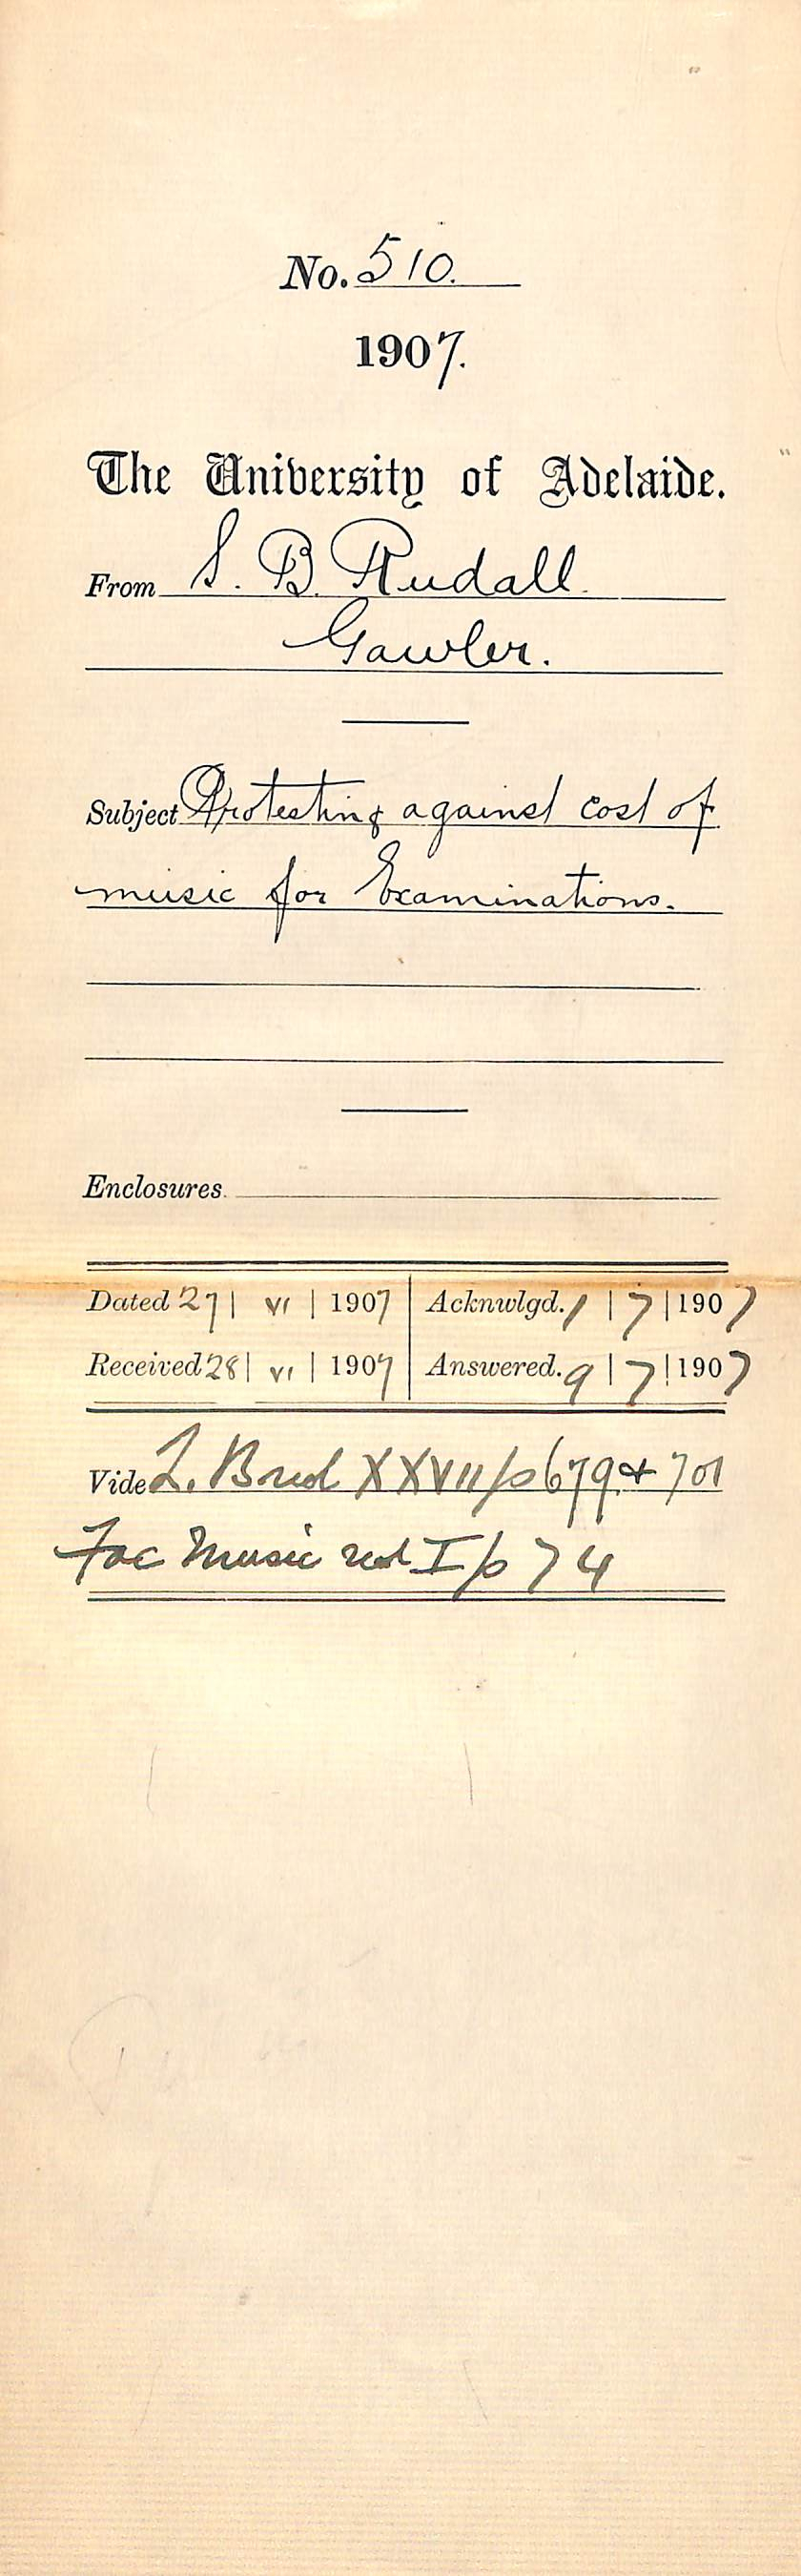 No. 510.
1907.
The University of Adelaide.
From S. B. Rudall.
Gawler.
Subject Protesting against cost of
music for Examinations.
Enclosures.
Dated 27 | VI | 1907 | Acknwlgd. 1 | 7 | 1907
Received 28 | VI | 1907 | Answered. 9 | 7 | 1907
Vide L. B XXVII/p 679 & 701
Fac Music I/p 74